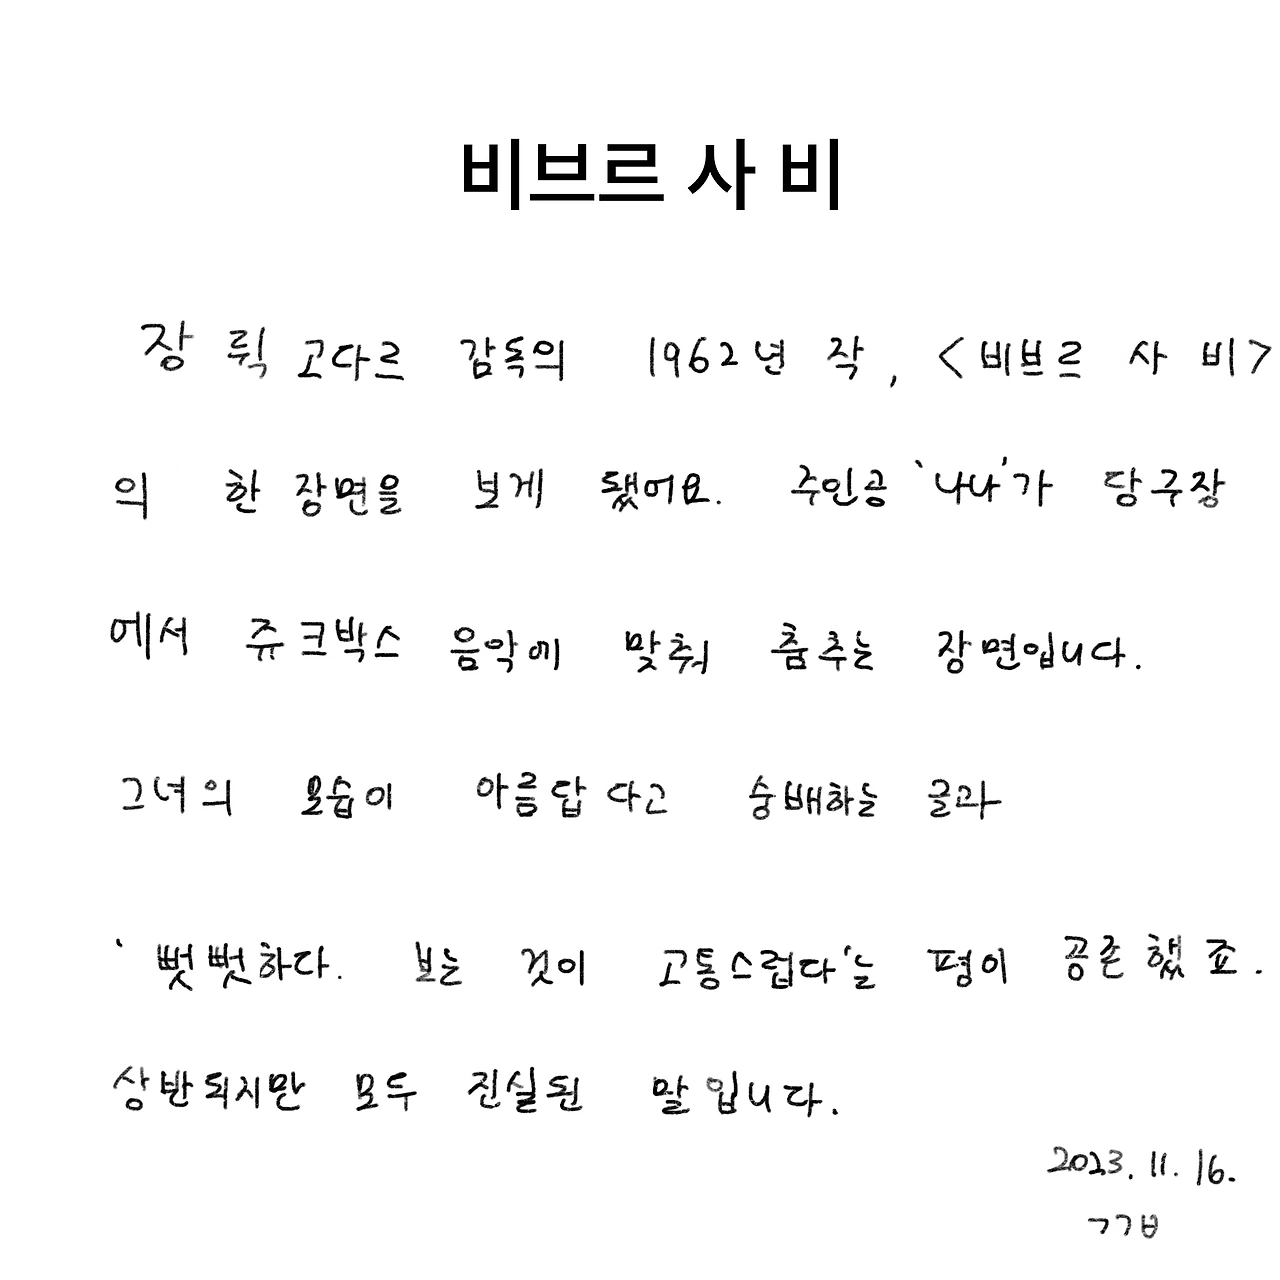 비브르 사 비
장 뤽 고다르 감독의 1962년 작, <비브르 사 비>
의 한 장면을 보게 됐어요. 주인공 '나나'가 당구장
에서 쥬크박스 음악에 맞춰 춤추는 장면입니다.
그녀의 모습이 아름답다고 숭배하는 글과
'뻣뻣하다. 보는 것이 고통스럽다'는 평이 공존했죠.
상반되지만 모두 진실된 말입니다.
2023.11.16.
ㄱㄱㅂ